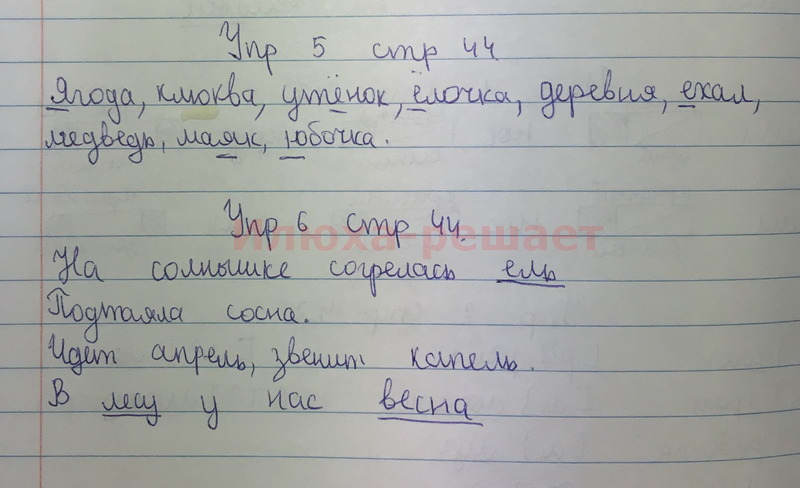 Упр 5 стр 44.
Ягода, клюква, утёнок, ёлочка, деревня, ехал,
медведь, маяк, юбочка.
Упр 6 стр 44.
Илюха-решает
На солнышке согрелась ель
Подтаяла сосна.
Идет апрель, звенит капель.
В лесу у нас весна